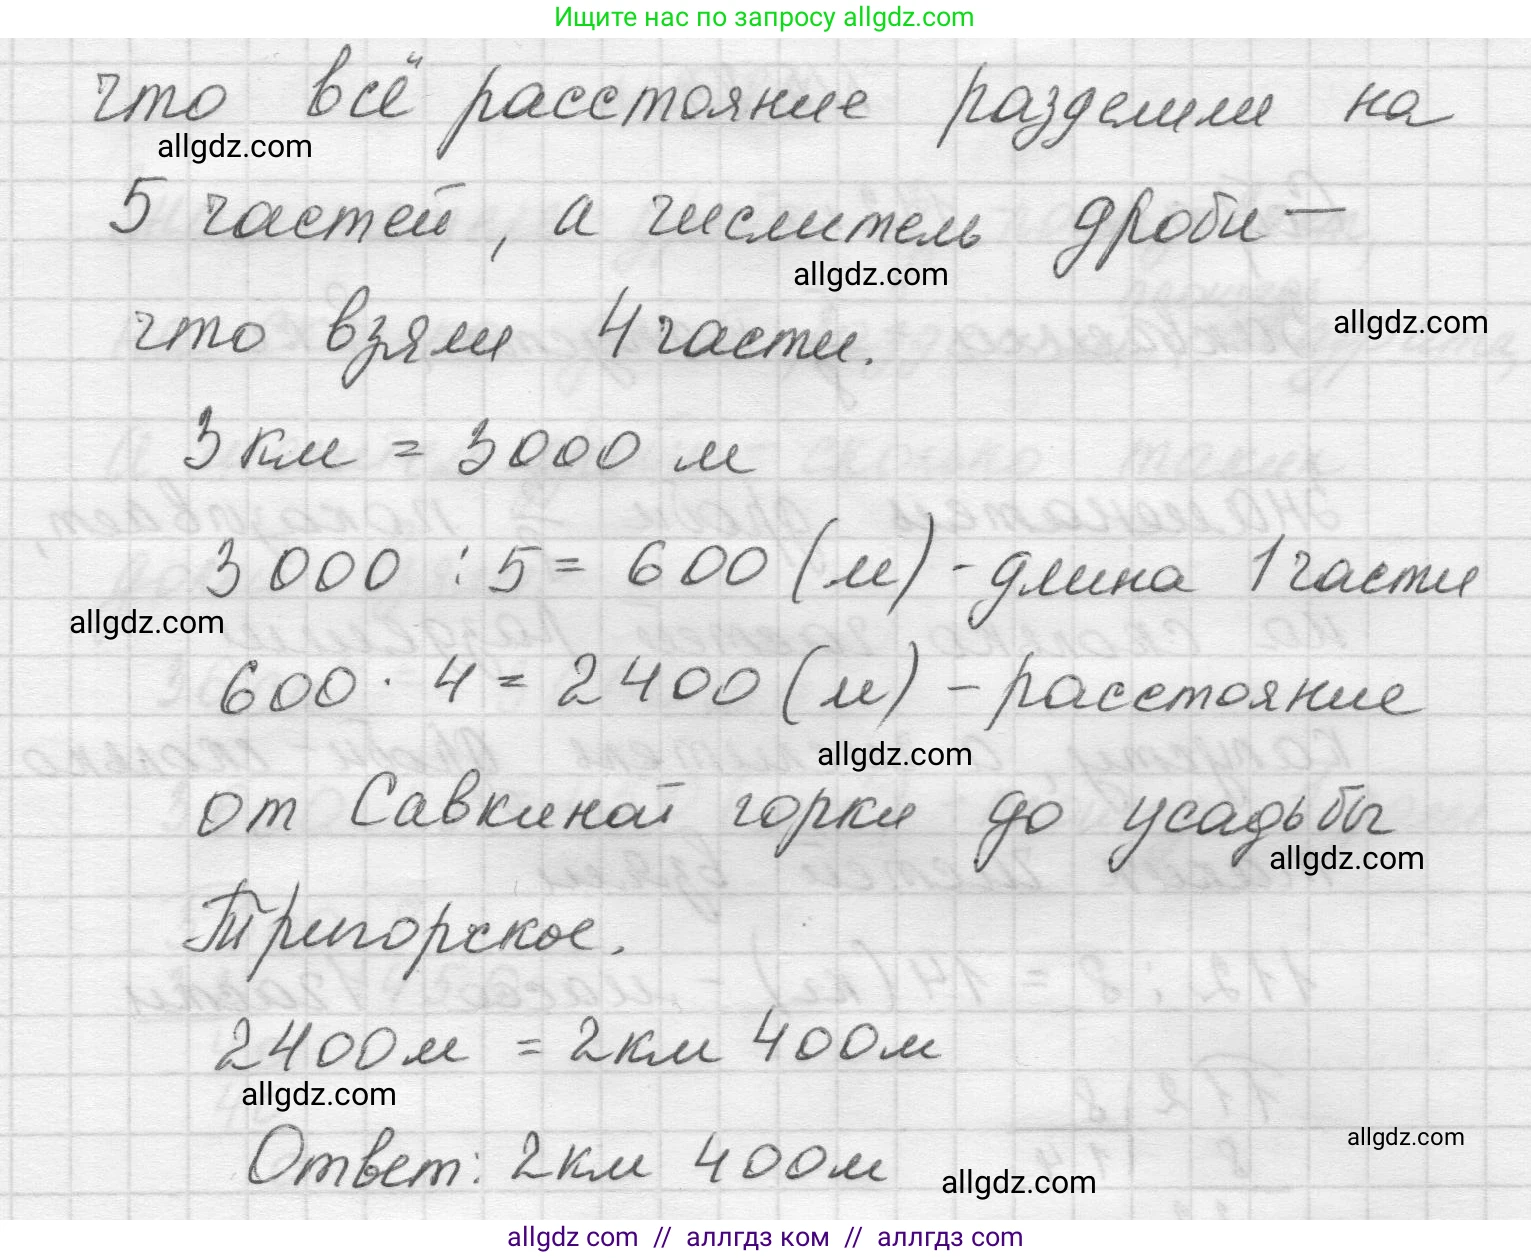 Ищите нас по запросу allgdz.com
что всё расстояние разделили на
allgdz.com
5 частей, а числитель дроби —
allgdz.com
allgdz.com
что взяли 4 части.
3 км = 3000 м
3 000 : 5 = 600 (м) - длина 1 части
allgdz.com
600 · 4 = 2400 (м) - расстояние
allgdz.com
от Савкиной горки до усадьбы
allgdz.com
Тригорское.
2400 м = 2 км 400 м
allgdz.com
allgdz.com
Ответ: 2 км 400 м
allgdz.com
allgdz.com // аллгдз ком // аллгдз.com